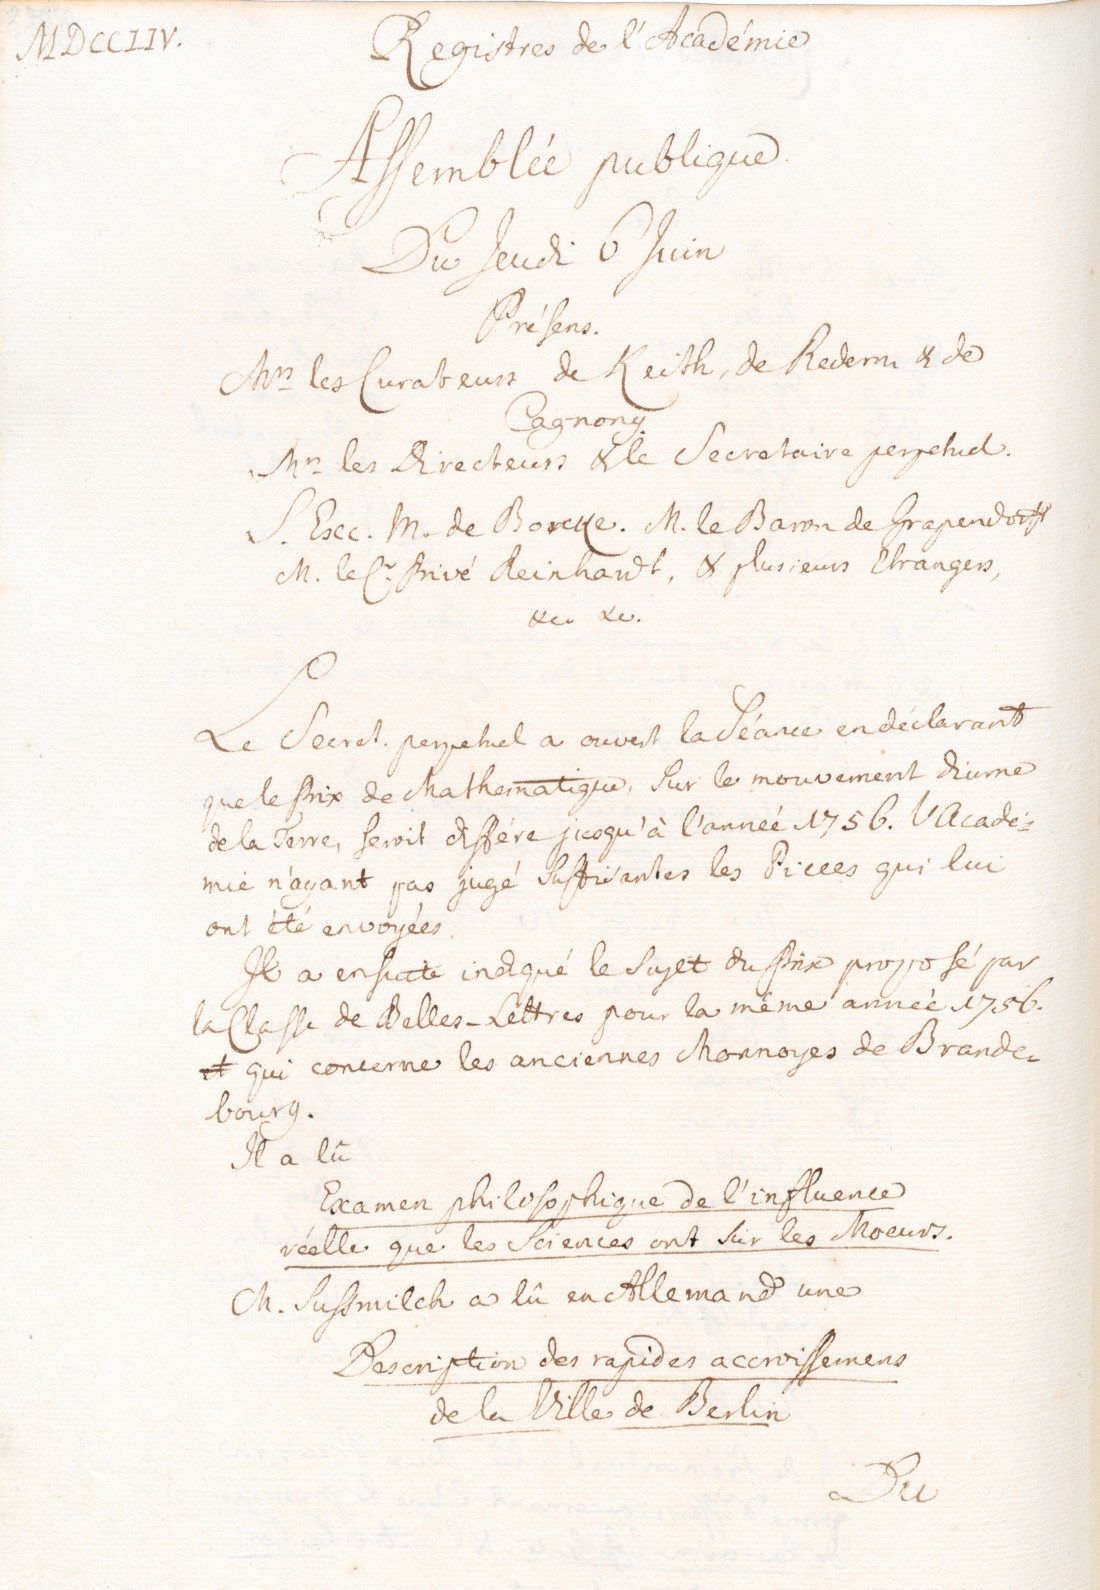 MDCCLIV.
Registres de l'Académie
Assemblée publique.
Du Jeudi 6 Juin
Présens.
Mrs les Curateurs de Keith, de Redern & de
Cagnony.
Mrs les Directeurs & le Secretaire perpetuel.
S. Exc. M. de Borcke. M. le Baron de Grapendorff
M. le Cr. Privé Reinhardt, & plusieurs Etrangers,
&c. &c.
Le Secret. perpetuel a ouvert la Séance en déclarant
que le Prix de Mathematique, sur le mouvement diurne
de la Terre, seroit différé jusqu'à l'année 1756. l'Acadé-
mie n'ayant pas jugé suffisantes les Pieces qui lui
ont été envoyées.
Il a ensuite indiqué le sujet du Prix proposé par
la Classe de Belles-Lettres pour la même année 1756.
et qui concerne les anciennes Monnoyes de Brande-
bourg.
Il a lû
Examen philosophique de l'influence
réelle que les Sciences ont sur les Moeurs.
M. Sussmilch a lû en Allemand une
Description des rapides accroissemens
de la Ville de Berlin
Du